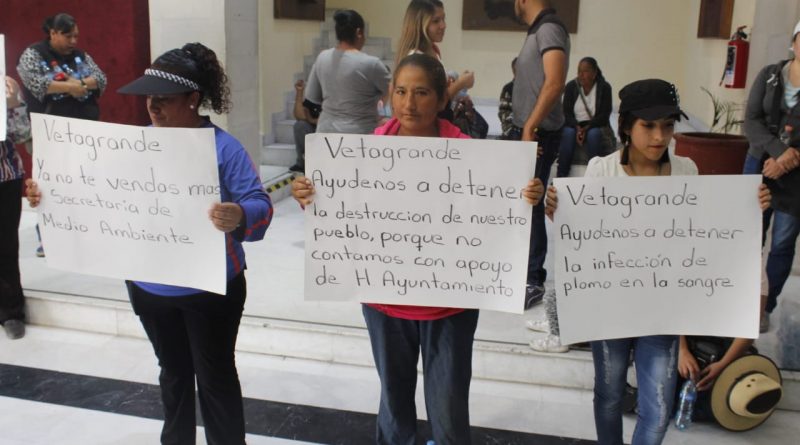 Vetagrande
Ya no te vendas mas
Secretaria de
Medio Ambiente
Vetagrande
Ayudenos a detener
la destruccion de nuestro
pueblo, porque no
contamos con apoyo
de H Ayuntamiento
Vetagrande
Ayudenos a detener
la infección de
plomo en la sangre